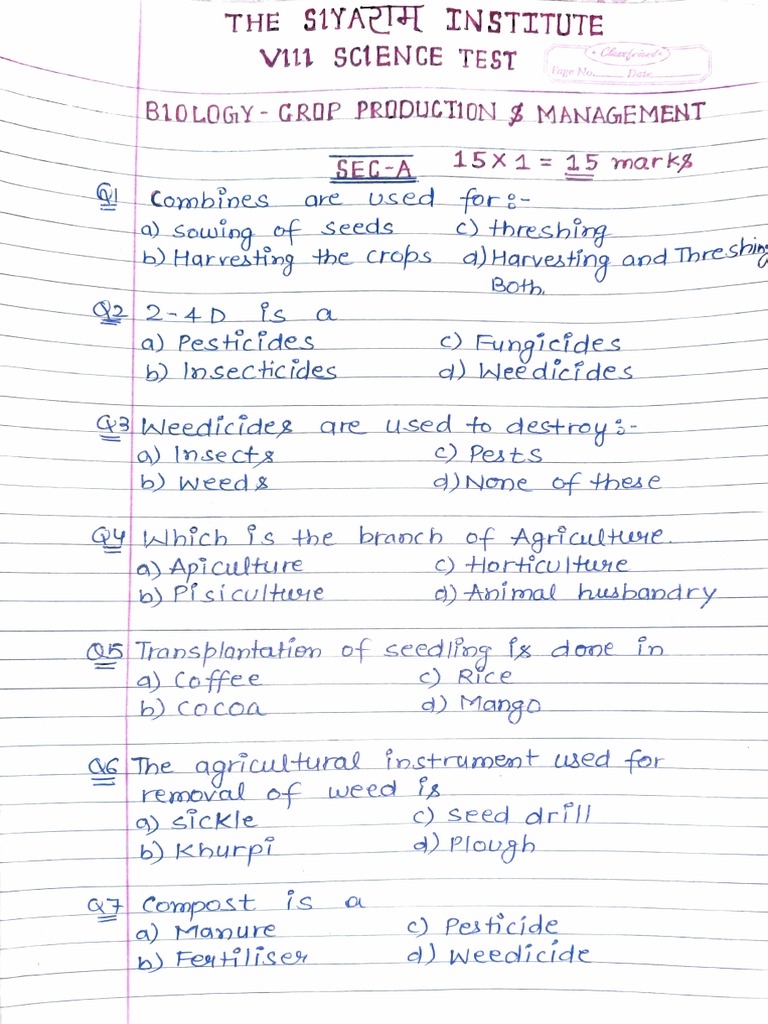 THE SIYAराम INSTITUTE
VIII SCIENCE TEST
Classfriend
Page No. Date
BIOLOGY - CROP PRODUCTION & MANAGEMENT
SEC-A 15 X 1 = 15 marks
Q1 Combines are used for:-
a) sowing of seeds c) threshing
b) Harvesting the crops d) Harvesting and Threshing
Both.
Q2 2-4 D is a
a) Pesticides c) Fungicides
b) Insecticides d) Weedicides
Q3 Weedicides are used to destroy:-
a) Insects c) Pests
b) Weeds d) None of these
Q4 Which is the branch of Agriculture.
a) Apiculture c) Horticulture
b) Pisiculture d) Animal husbandry
Q5 Transplantation of seedling is done in
a) Coffee c) Rice
b) Cocoa d) Mango
Q6 The agricultural instrument used for
removal of weed is
a) sickle c) seed drill
b) Khurpi d) Plough
Q7 Compost is a
a) Manure c) Pesticide
b) Fertiliser d) Weedicide